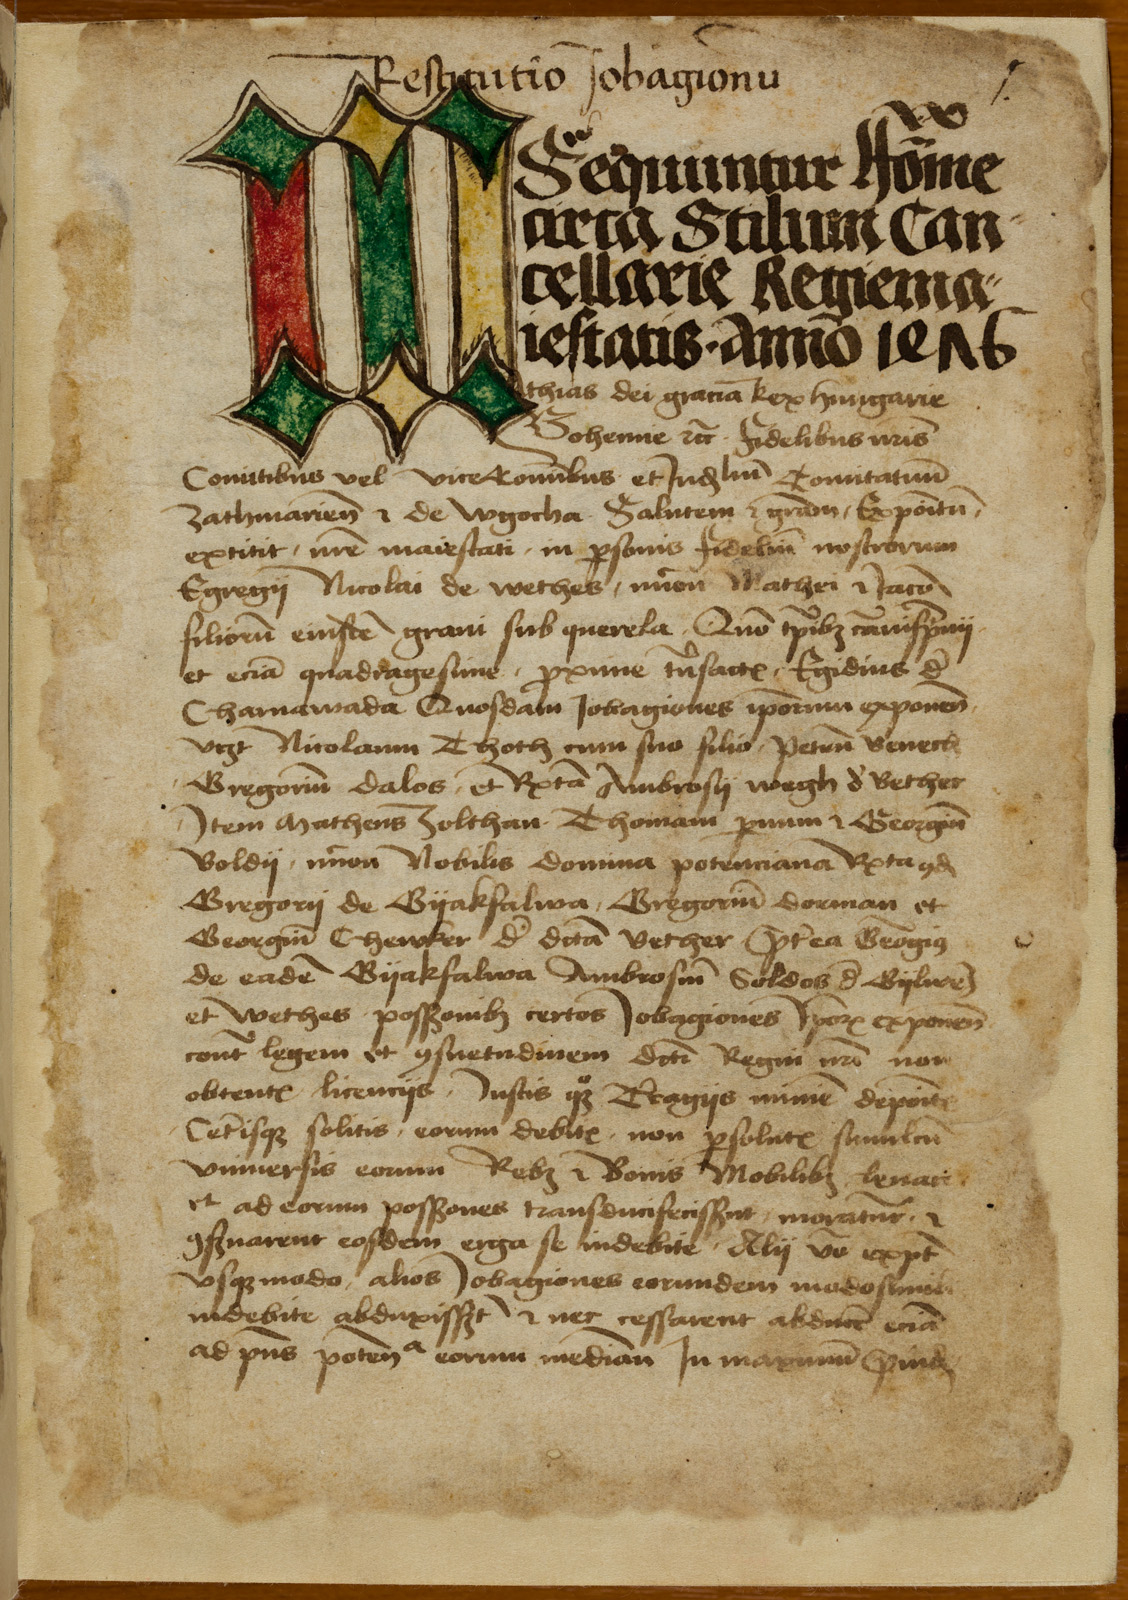 Restitutio Jobagionu
1.
Sequuntur
circa Stilum Can-
cellarie Regiema-
iestatis. Anno 1476
M
thias dei gracia Rex hungarie
Bohemie etc. Fidelibus nris
Comitibus vel viceComitibus et Judlium Comitatuum
Zathmarien et de Wgocha Salutem et gram, Expoitu,
extitit, nre maiestati, in psonis fidelium nostrorum
Egregij Nicolai de wethes, Mathei et Jaco
filiorum eiusde graui sub querela, Quo tpibz
et ecia quadragesime, pxime tnsacte, Egidius de
Charnawada Quosdam Jobagiones iporum exponen,
Nicolaum Thoth cum suo filio, Petrum Benech
Gregorium dalos, et Rxta Ambrosij wegh de Vether
Item Matheus Zolthan Thomam et Georgium
Boldij, Nobilis domina potenciana Rxta qd
Gregorij de Gijakfalwa, Gregorium dorman et
Georgium de dcta Vether Georgius
de eade Gijakfalwa Ambrosium Soldos de
et wethes possionibz certos Jobagiones exponen
cont legem et gsuetudinem dcti Regni nri non
obtente licencijs, Justis Tragijs minime deposite
Cetisqz solitis, eorum debite, non psolute simulcu
vniuersis eorum Rebz et Bonis Mobilibz
et ad eorum possiones transducifecissent, et
gseruarent eosdem erga se indebite, Alij vo
vsqzmodo, alios Jobagiones eorundem
indebite abduxissent et nec cessarent abduce ecia
ad pns poten a eorum median In maximum